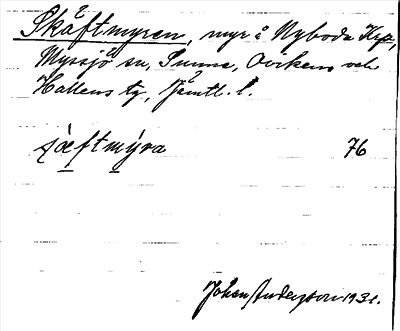 Skäftmyren, myr å Nyboda Kyp,
Myssjö sn, Sunne, Ovikens och
Hallens tg, Jämtl. l.
sjæftmýra 76
Johan Anderzon 1931.